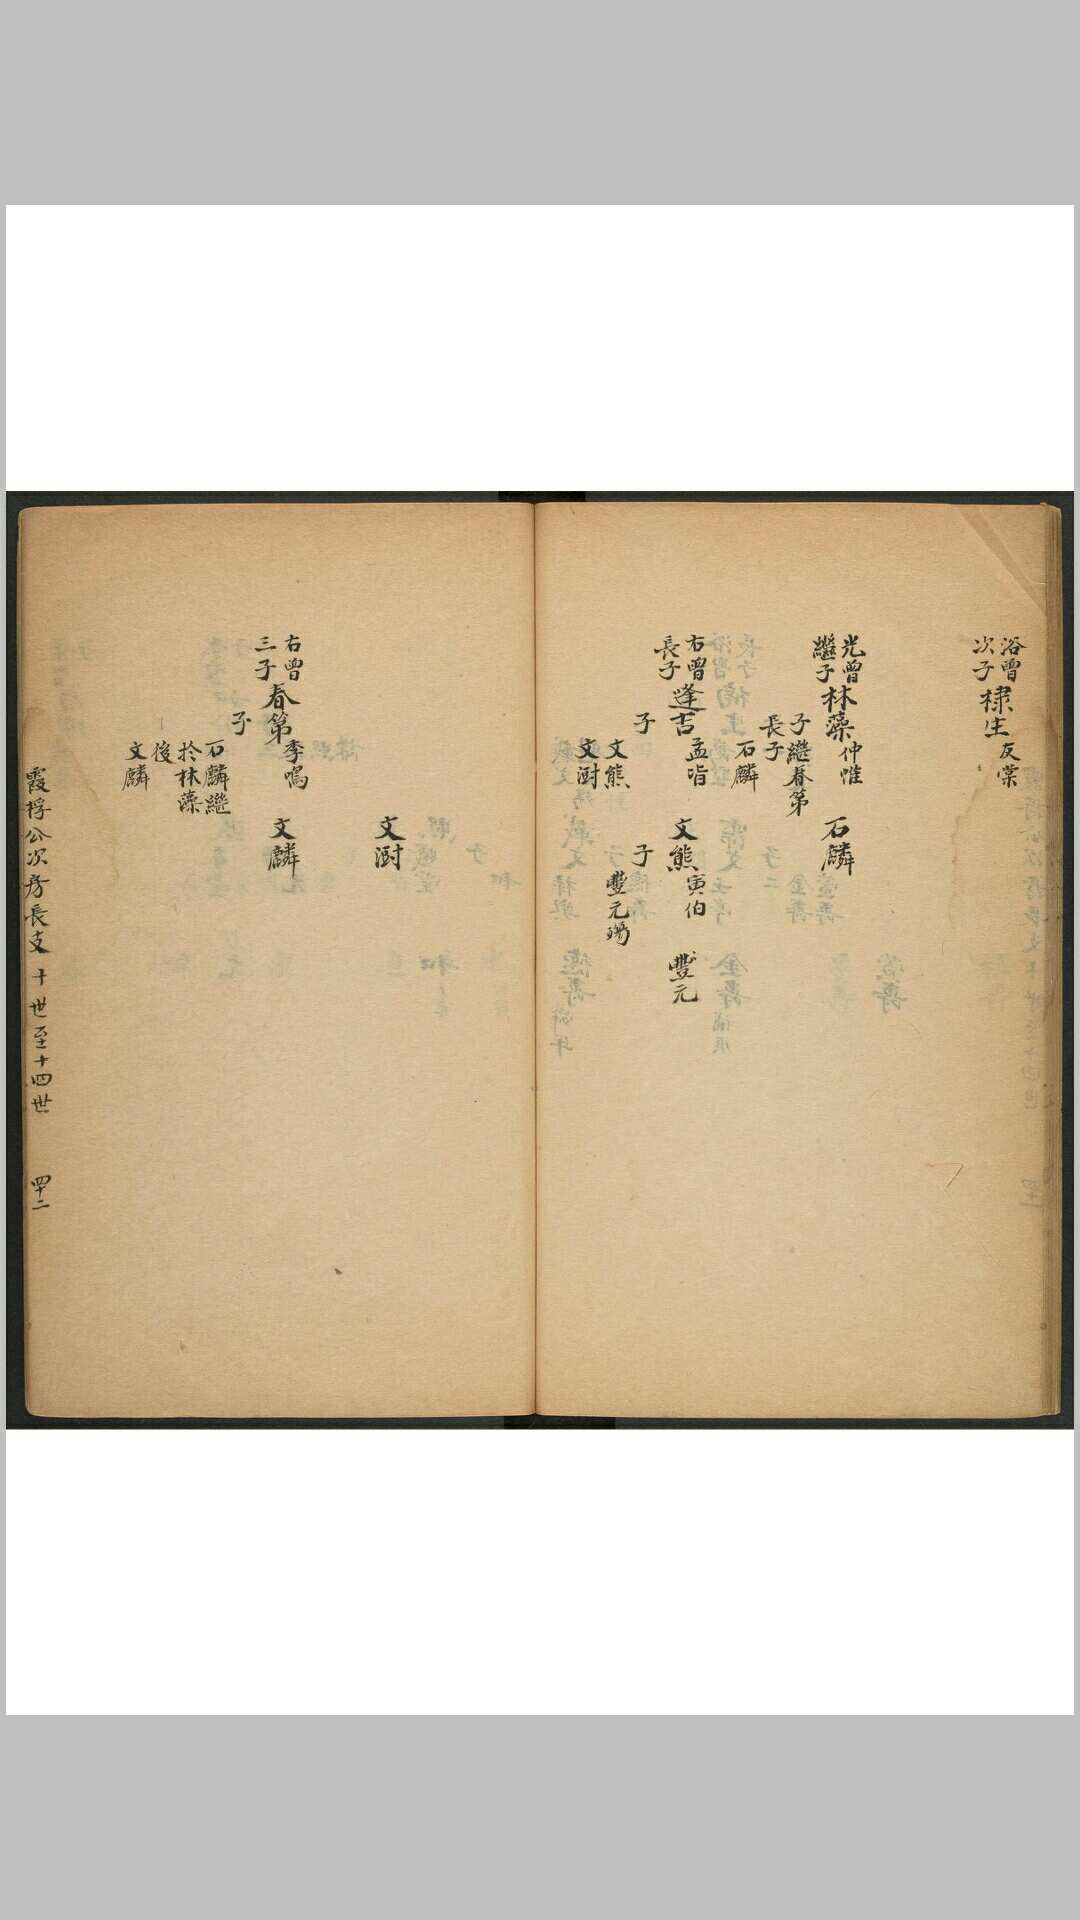 浴曾
次子
棣生
友棠
光曾
繼子
林藻
仲惟
子繼春第
長子
石麟
石麟
右曾
長子
逢吉
孟皆
子
文熊
文澍
文熊
寅伯
子
豐元殤
豐元
文澍
右曾
三子
春第
季鳴
子
石麟繼
於林藻
後
文麟
文麟
霞桴公次房長支 十世至十四世 四十二